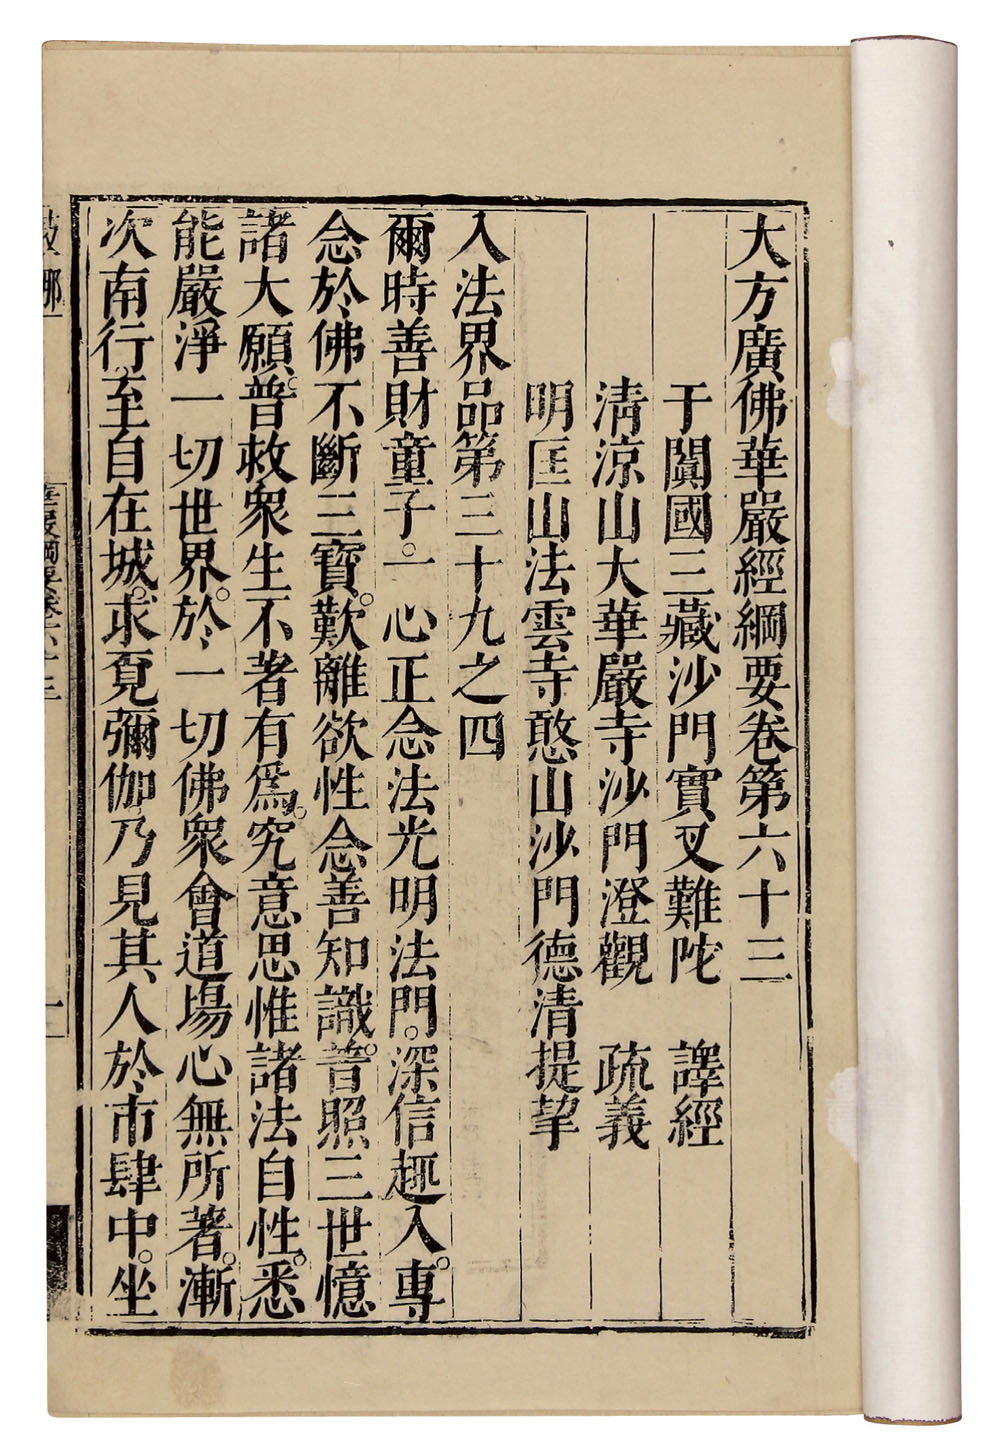 大方廣佛華嚴經綱要卷第六十三
于闐國三藏沙門實叉難陀　譯經
清涼山大華嚴寺沙門澄觀　疏義
明匡山法雲寺憨山沙門德清提挈
入法界品第三十九之四
爾時善財童子。一心正念法光明法門。深信趣入。專
念於佛不斷三寶。歎離欲性念善知識。普照三世憶
諸大願。普救眾生不著有為。究意思惟諸法自性。悉
能嚴淨一切世界。於一切佛眾會道場心無所著。漸
次南行至自在城。求覓彌伽乃見其人於市肆中。坐
華嚴綱要卷六十三
一